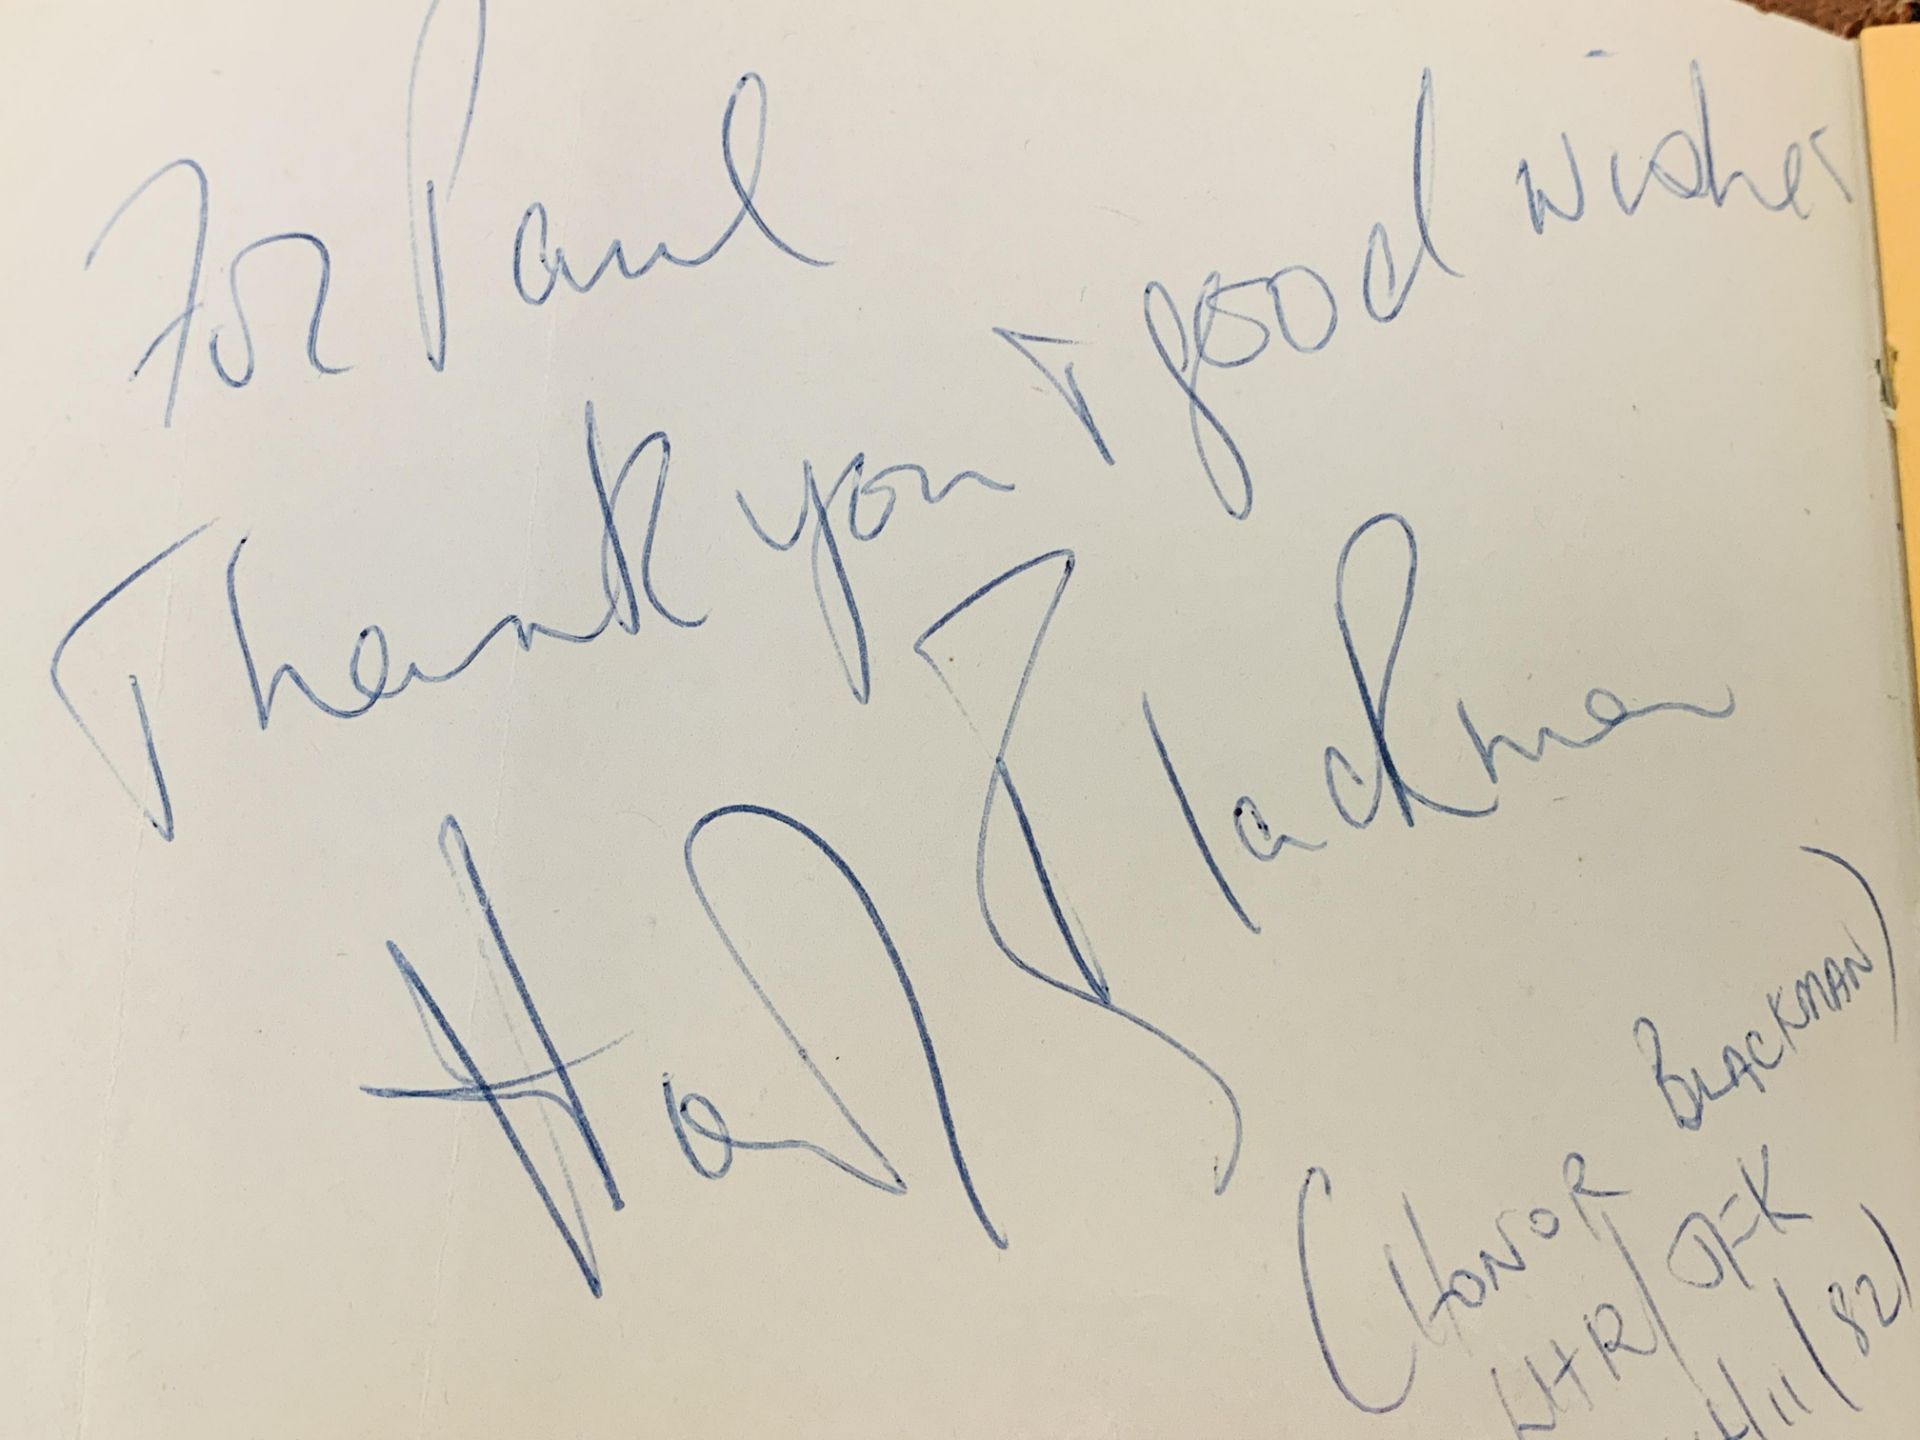 For Paul
Thank you + good wishes
Honor Blackman
(HONOR BLACKMAN)
LHR/JFK
/11/82